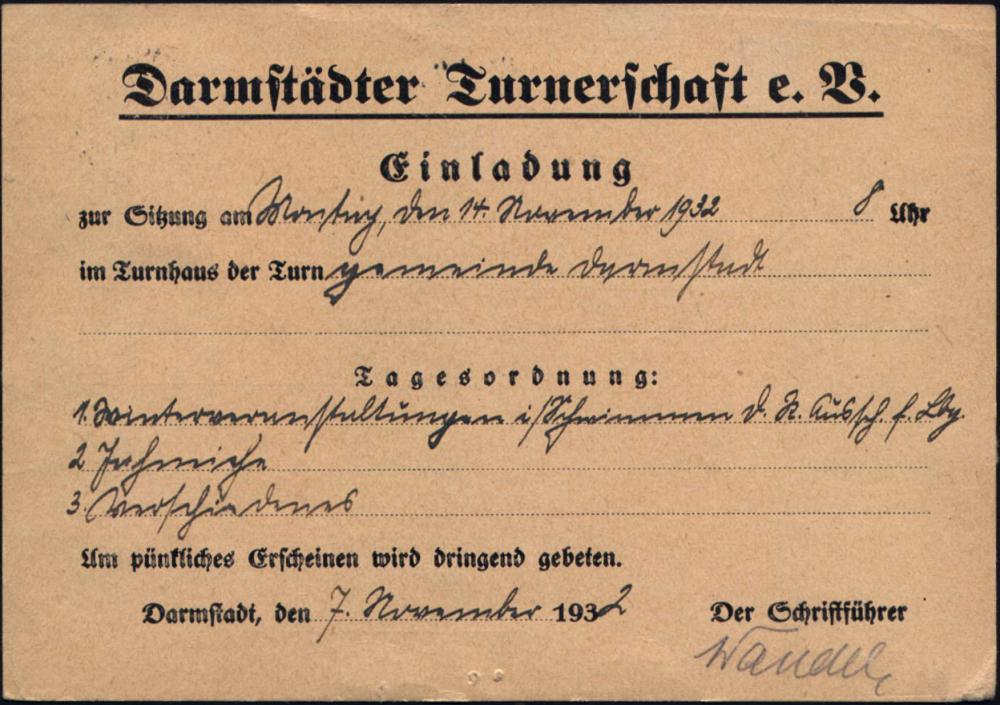 Darmstädter Turnerschaft e. V.
Einladung
zur Sitzung am Montag, den 14. November 1932 8 Uhr
im Turnhaus der Turngemeinde Darmstadt
Tagesordnung:
1. Winterveranstaltungen i/Schwimmen d. St. Aussch. f. Lbg.
2.
3. Verschiedenes
Um pünktliches Erscheinen wird dringend gebeten.
Darmstadt, den 7. November 1932 Der Schriftführer
Wandel